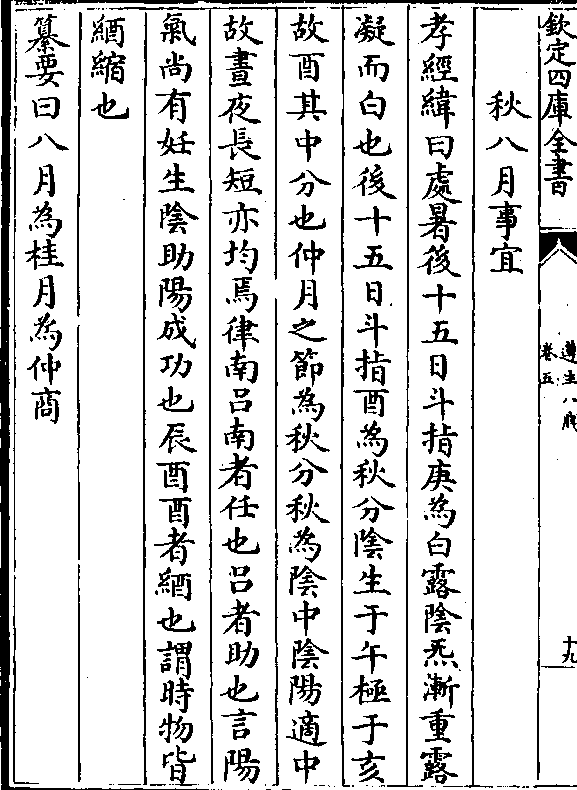 欽定四庫全書
遵生八牋
卷五
十九
秋八月事宜
孝經緯曰處暑後十五日斗指庚為白露陰炁漸重露
凝而白也後十五日斗指酉為秋分陰生于午極于亥
故酉其中分也仲月之節為秋分秋為陰中陰陽適中
故晝夜長短亦均焉律南呂南者任也呂者助也言陽
氣尚有妊生陰助陽成功也辰酉酉者緧也謂時物皆
緧縮也
纂要曰八月為桂月為仲商